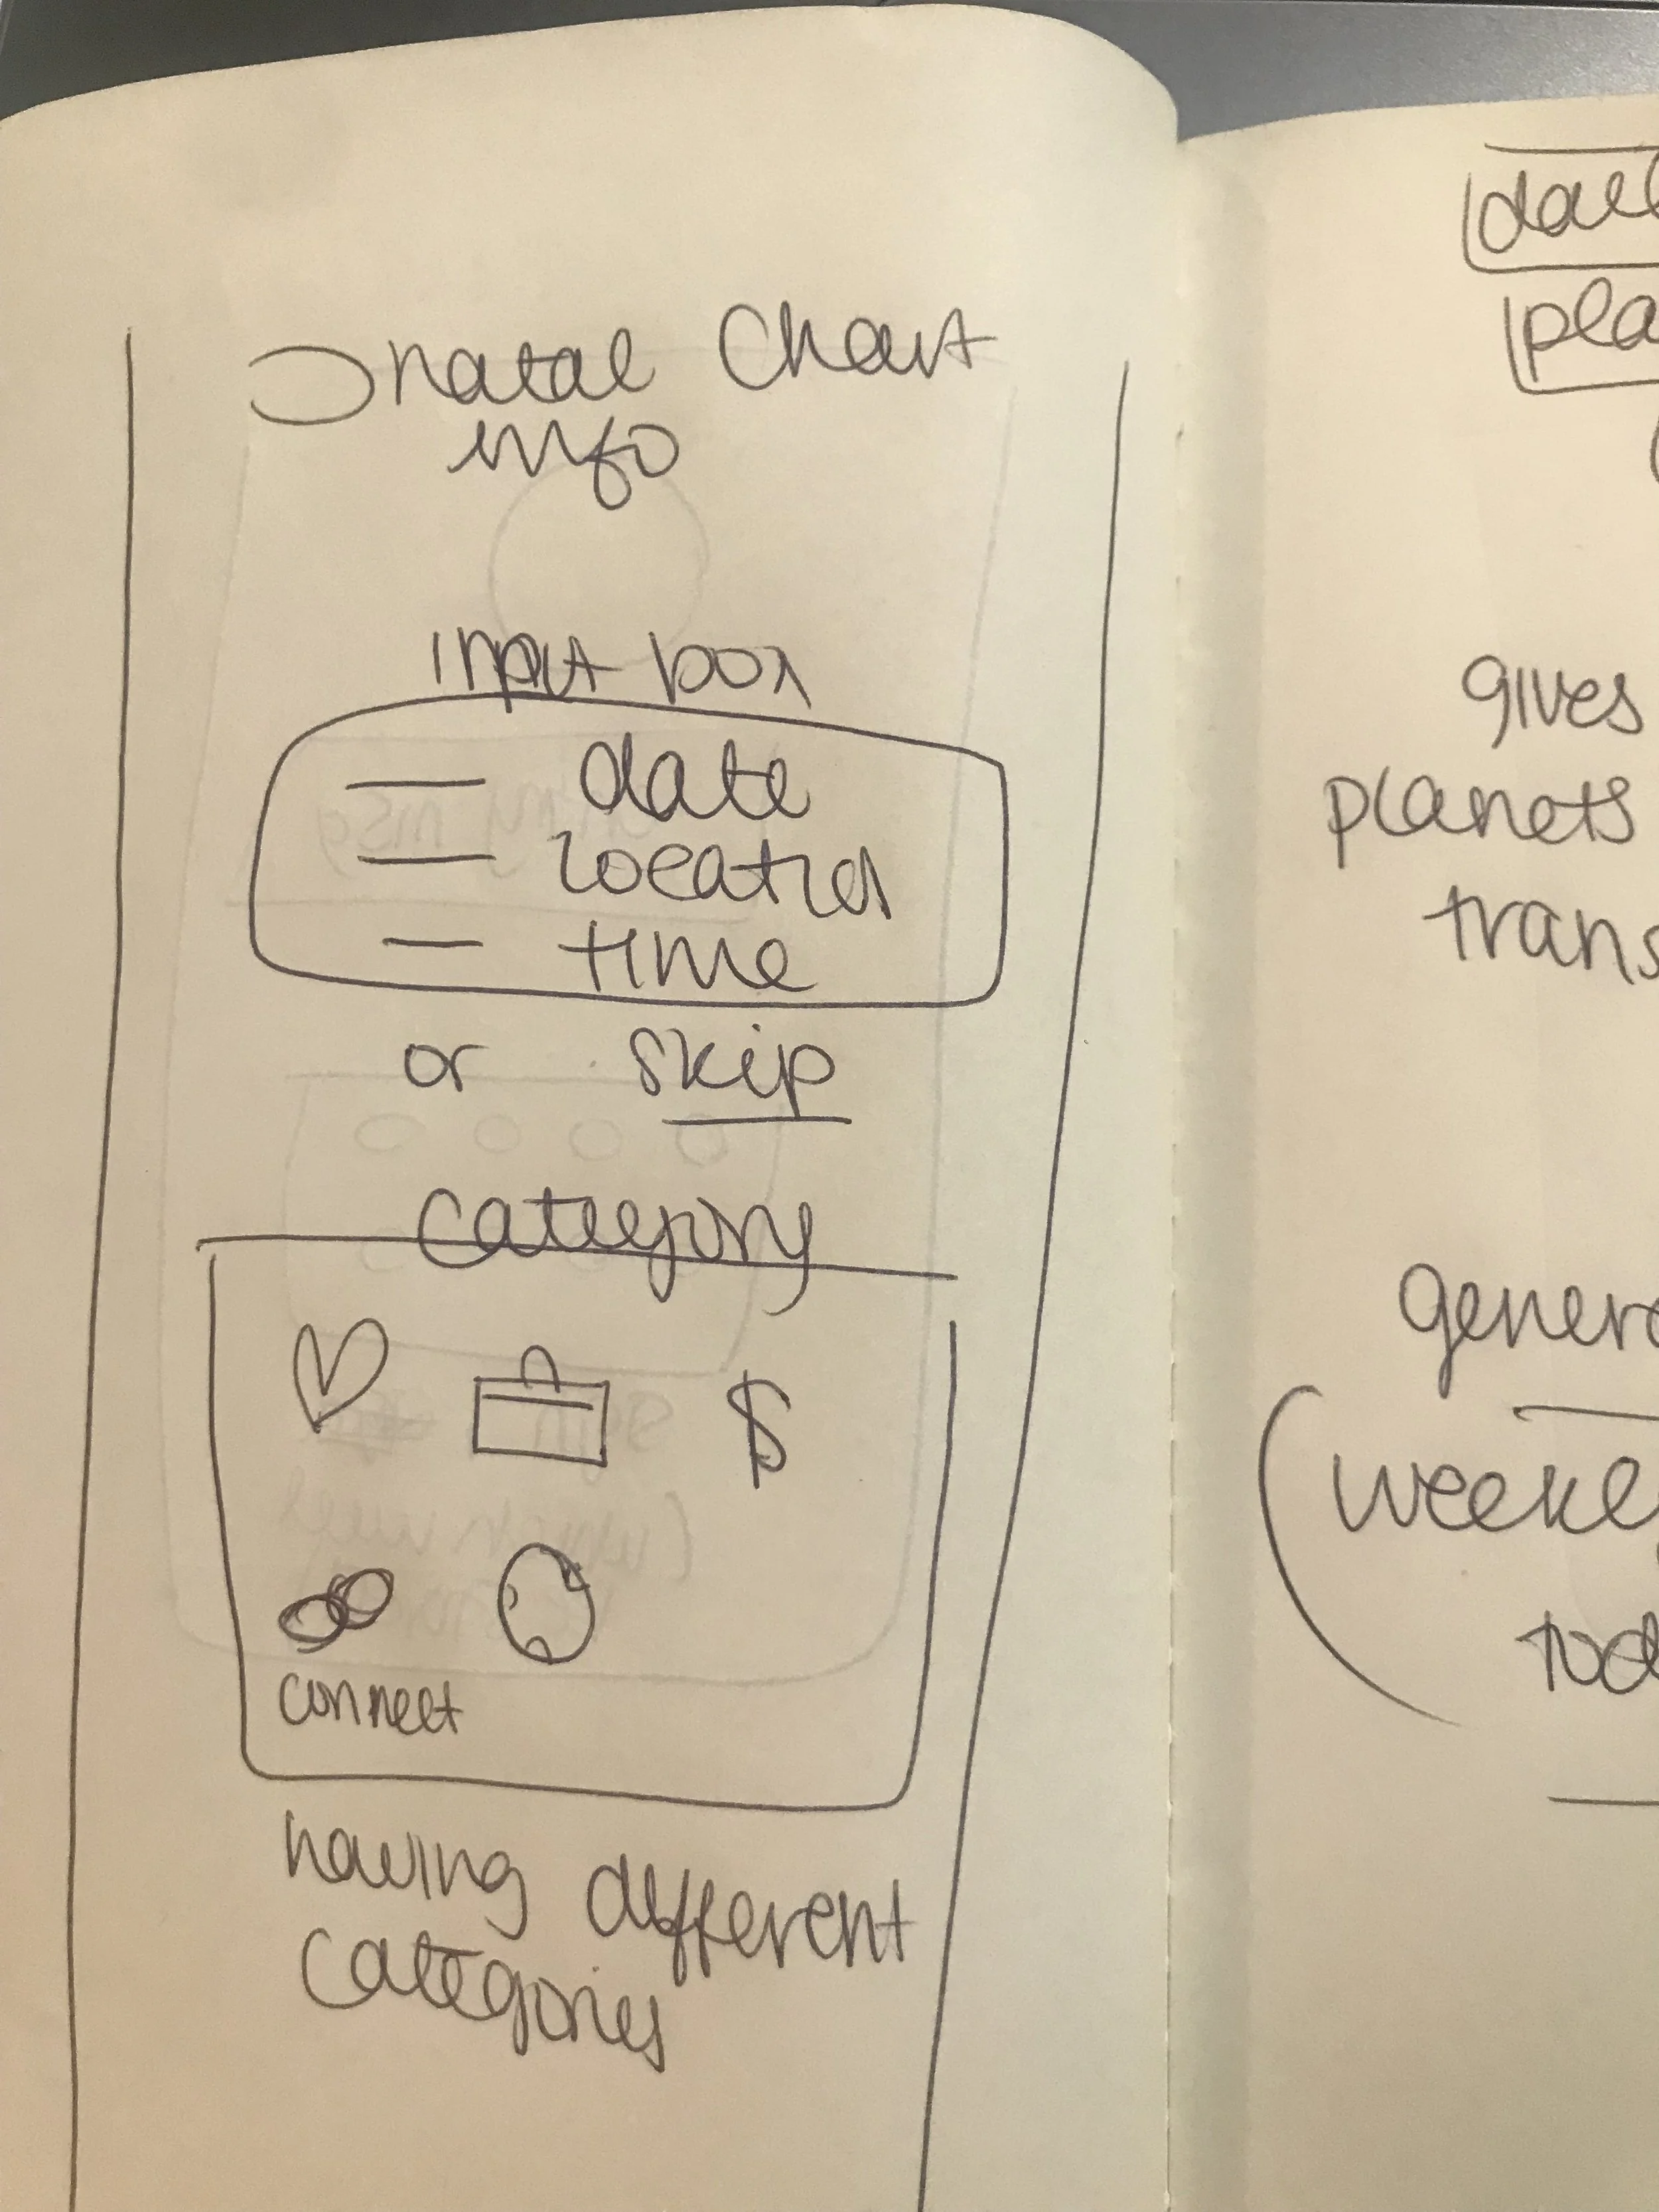 natal chart
info
input box
date
location
time
or skip
category
$
connect
having different
categories
gives
planets